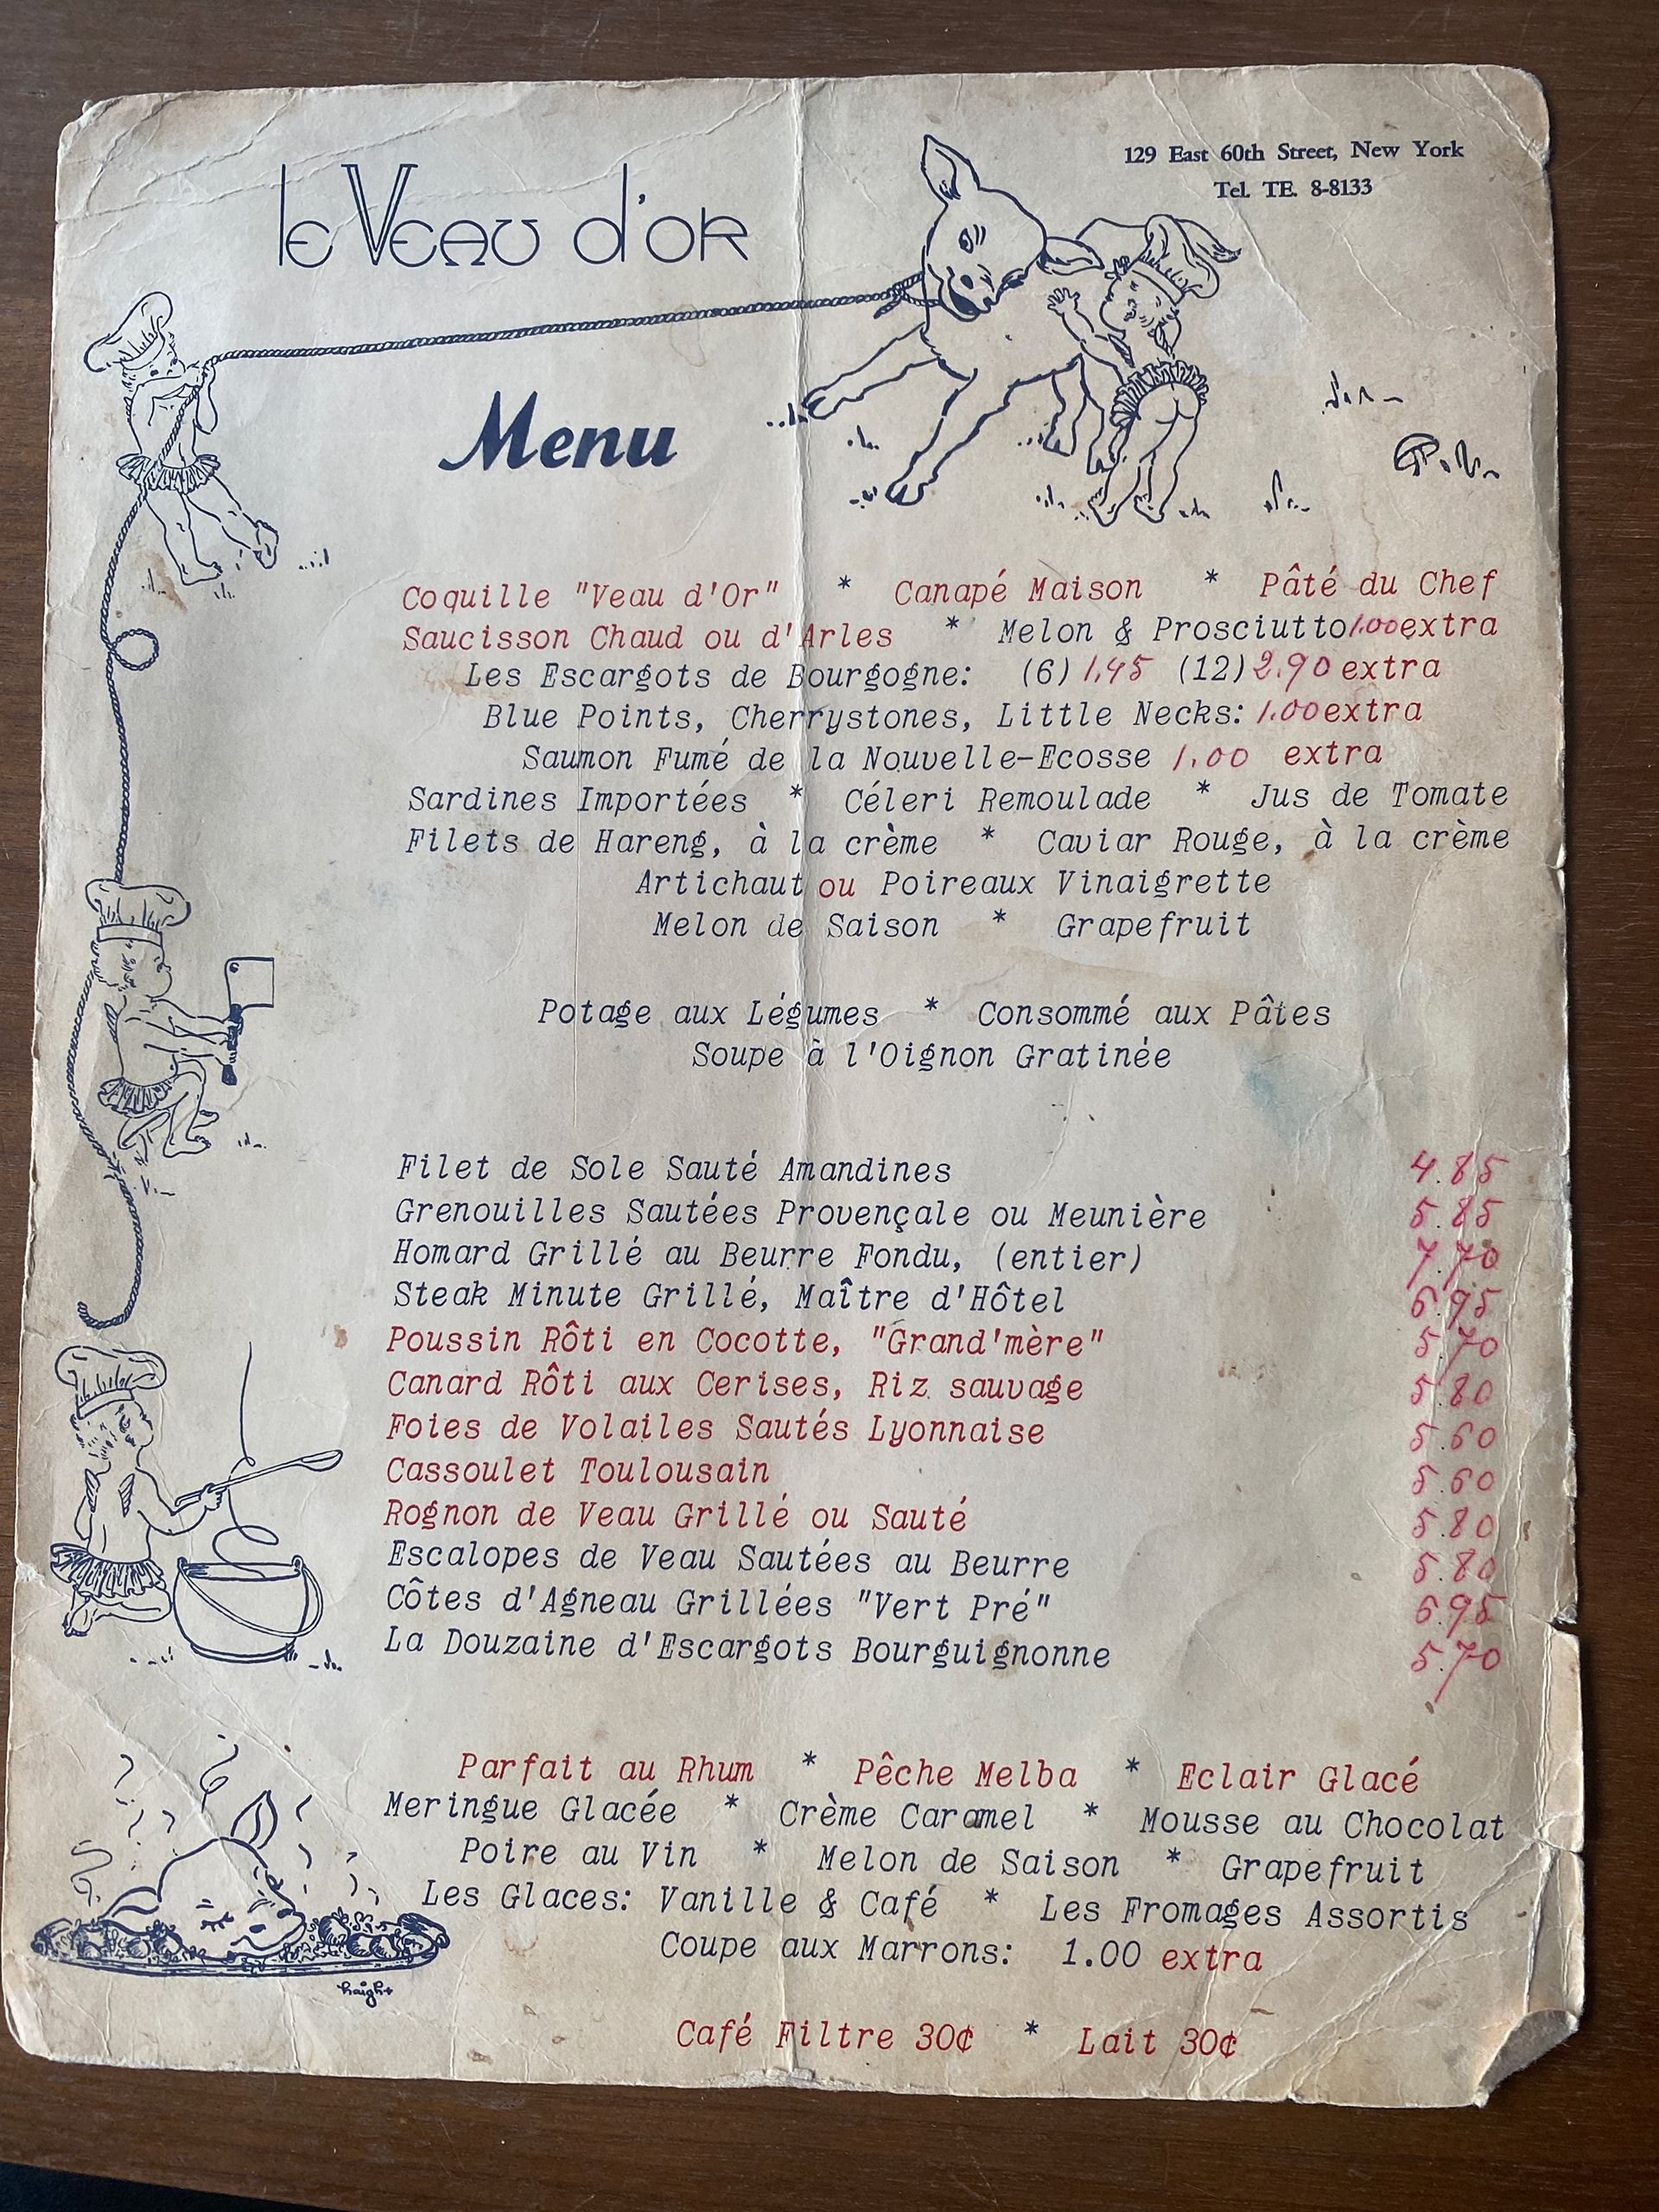 le Veau d'or
129 East 60th Street, New York
Tel. TE. 8-8133
Menu
Coquille "Veau d'Or" * Canapé Maison * Pâté du Chef
Saucisson Chaud ou d'Arles * Melon & Prosciutto 1.00 extra
Les Escargots de Bourgogne: (6) 1.45 (12) 2.90 extra
Blue Points, Cherrystones, Little Necks: 1.00 extra
Saumon Fumé de la Nouvelle-Ecosse 1.00 extra
Sardines Importées * Céleri Remoulade * Jus de Tomate
Filets de Hareng, à la crème * Caviar Rouge, à la crème
Artichaut ou Poireaux Vinaigrette
Melon de Saison * Grapefruit
Potage aux Légumes * Consommé aux Pâtes
Soupe à l'Oignon Gratinée
Filet de Sole Sauté Amandines 4.85
Grenouilles Sautées Provençale ou Meunière 5.85
Homard Grillé au Beurre Fondu, (entier) 7.70
Steak Minute Grillé, Maître d'Hôtel 6.95
Poussin Rôti en Cocotte, "Grand'mère" 5.70
Canard Rôti aux Cerises, Riz sauvage 5.80
Foies de Volailes Sautés Lyonnaise 5.60
Cassoulet Toulousain 5.60
Rognon de Veau Grillé ou Sauté 5.80
Escalopes de Veau Sautées au Beurre 5.80
Côtes d'Agneau Grillées "Vert Pré" 6.95
La Douzaine d'Escargots Bourguignonne 5.70
Parfait au Rhum * Pêche Melba * Eclair Glacé
Meringue Glacée * Crème Caramel * Mousse au Chocolat
Poire au Vin * Melon de Saison * Grapefruit
Les Glaces: Vanille & Café * Les Fromages Assortis
Coupe aux Marrons: 1.00 extra
haight
Café Filtre 30¢ * Lait 30¢